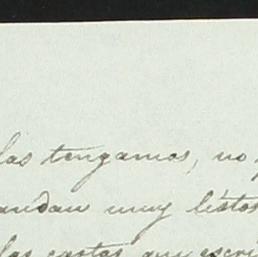 las tengamos, no
andan muy listos
las cartas que escri